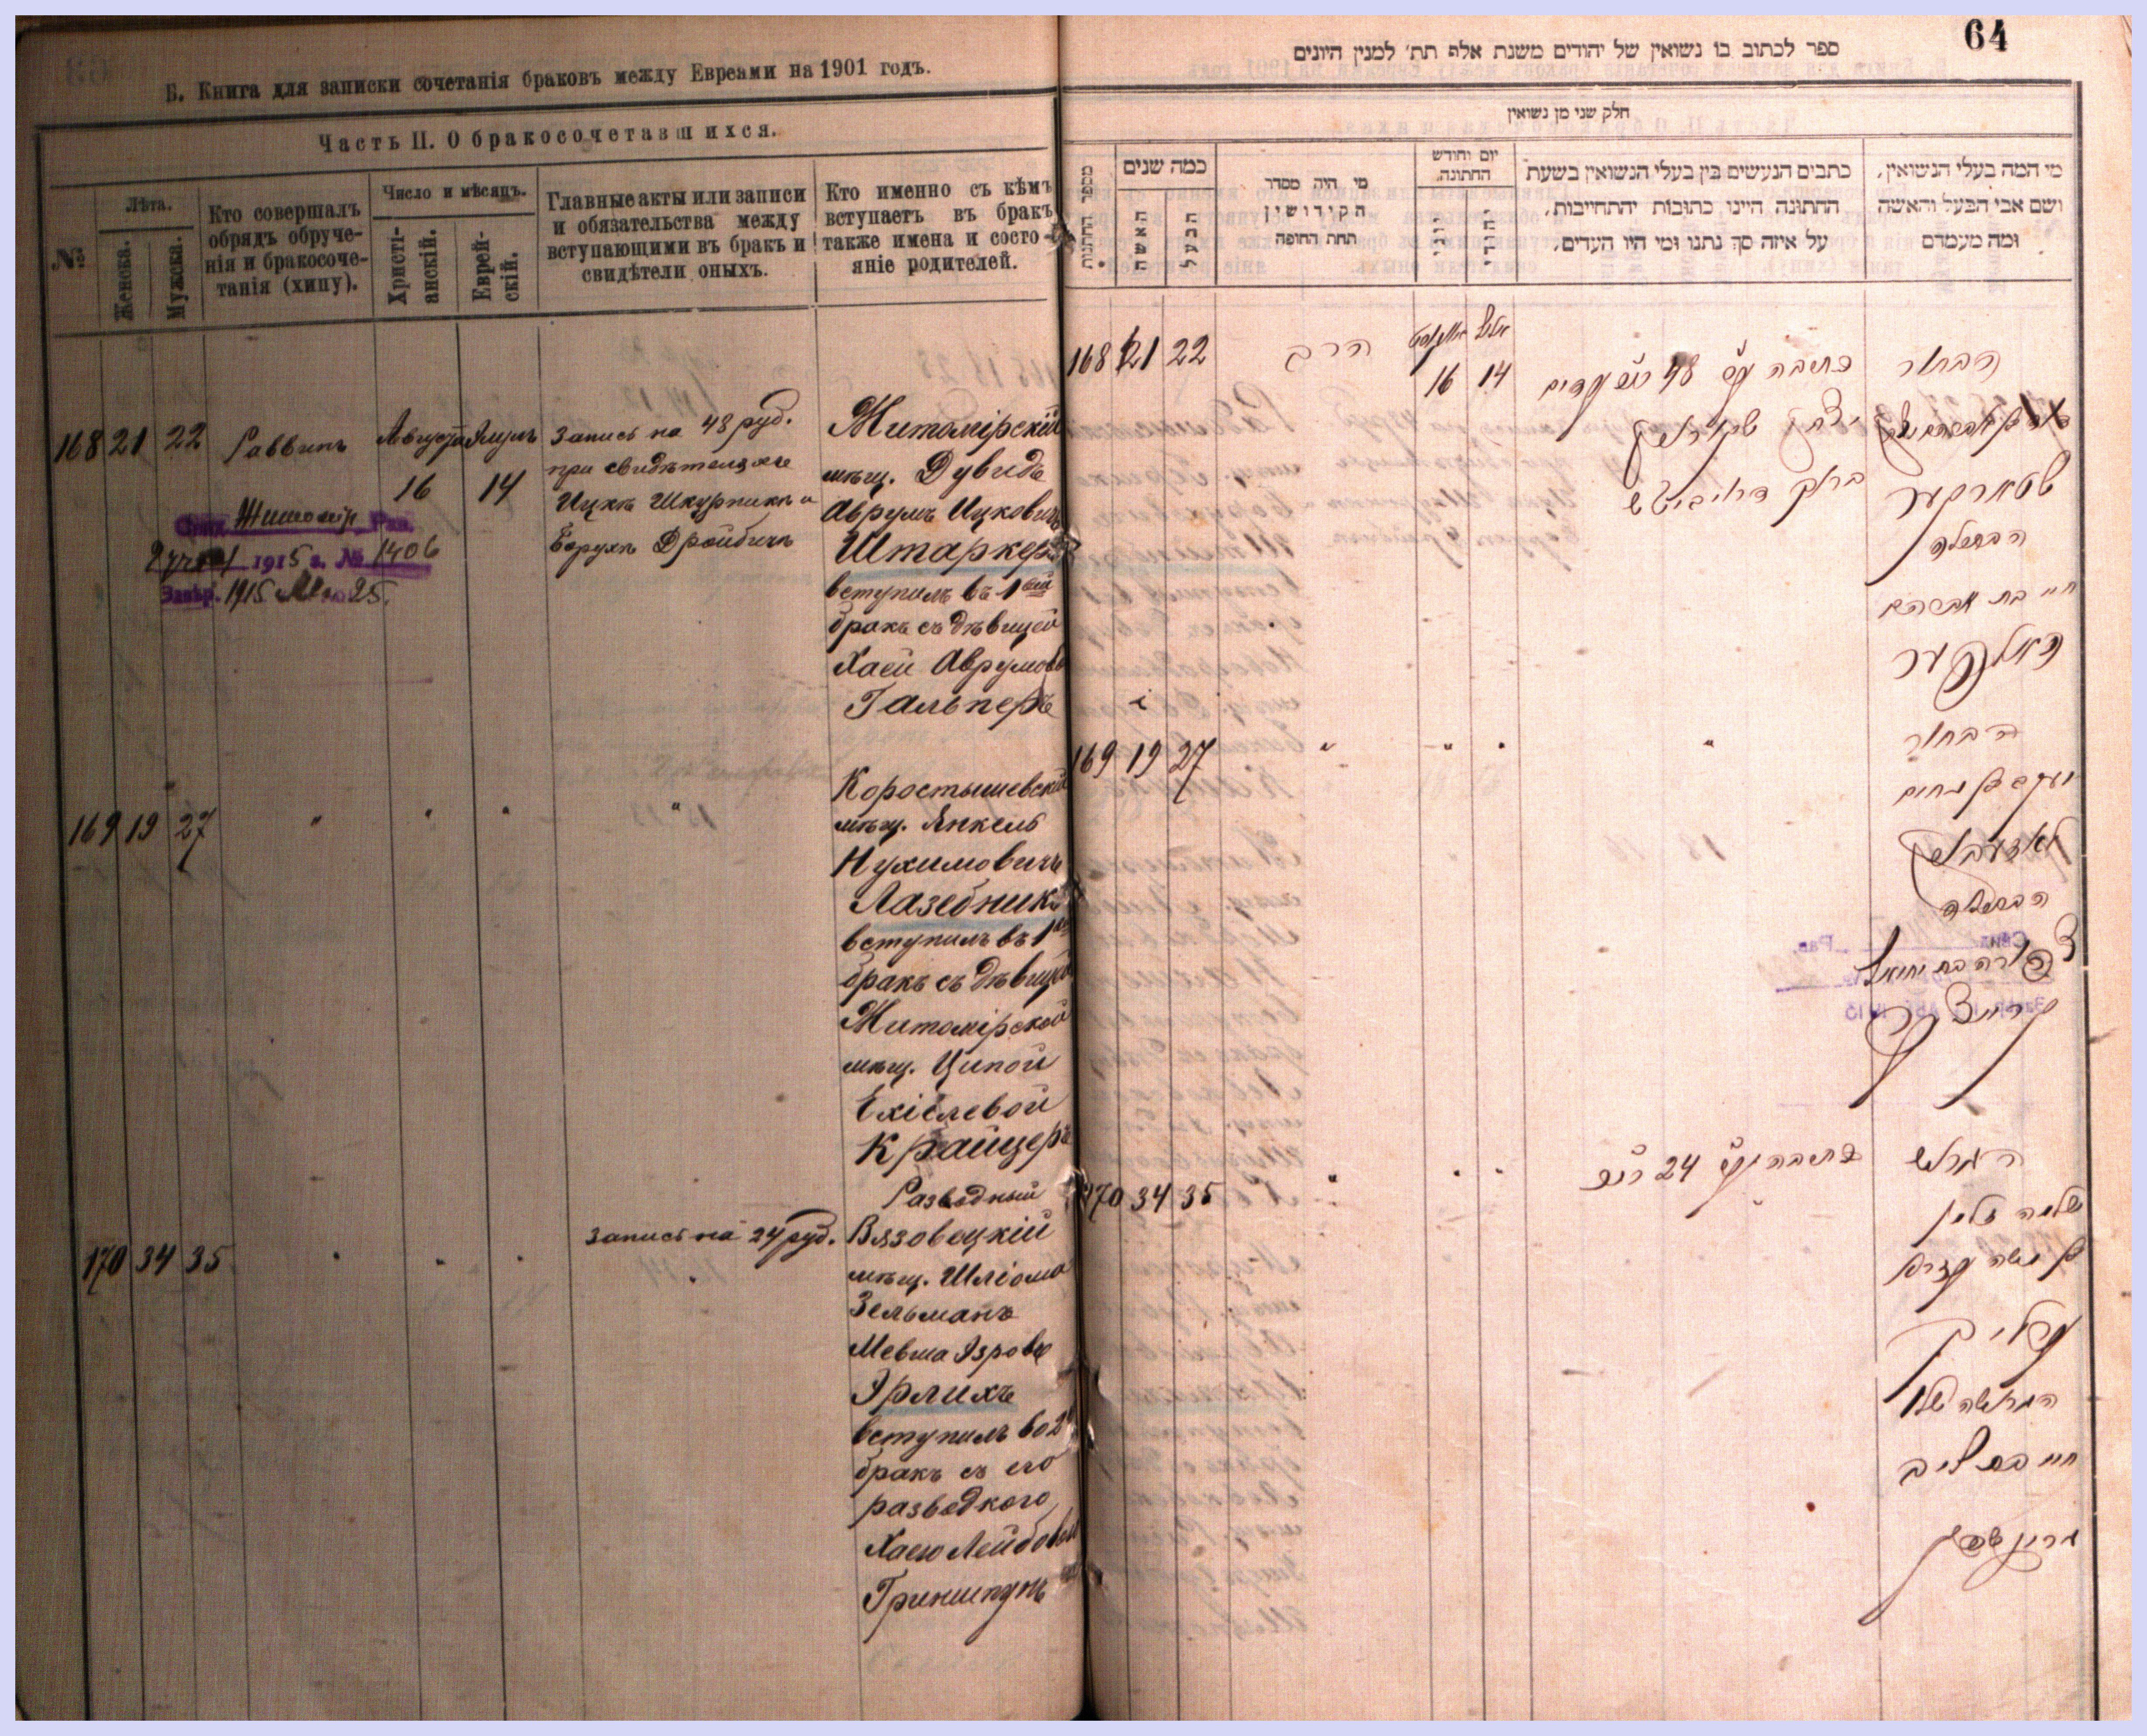 Б. Книга для записки сочетанія браковъ между Евреами на 1901 годъ.
Часть II. О бракосочетавшихся.
№
Лѣта.
Женска.
Мужска.
Кто совершалъ
обрядъ обруче-
нія и бракосоче-
танія (хипу).
Число и мѣсяцъ.
Христі-
анскій.
Еврей-
скій.
Главные акты или записи
и обязательства между
вступающими въ бракъ и
свидѣтели оныхъ.
Кто именно съ кѣмъ
вступаетъ въ бракъ
также имена и состо-
яніе родителей.
168 21 22 Раввинъ Августа Элулъ
16 14
Запись на 48 руб.
при свидѣтеляхъ
Ицкъ Шкурникъ и
Борухъ Дройбичъ
Житомірскій
мѣщ. Дувидъ
Аврумъ Ицковичъ
Штаркеръ
вступилъ въ 1ый
бракъ съ дѣвицей
Хаей Аврумовой
Гальперъ
Житомір Рав.
1915 г. № 1406
Завѣр. 1915 25.
169 19 27 " " " "
Коростышевскій
мѣщ. Янкель
Нухимовичъ
Лазебникъ
вступилъ въ 1ый
бракъ съ дѣвицей
Житомірской
мѣщ. Ципой
Ехіелевой
Крайцеръ
170 34 35 " " "
Запись на 24 руб.
"
Разводный
Вязовецкій
мѣщ. Шліома
Зельманъ
Мевша Эзровъ
Эрлихъ
вступилъ во 2й
бракъ съ его
разводкого
Хаею Лейбовой
Гриншпунъ
64
ספר לכתוב בו נשואין של יהודים משנת אלף תת׳ למנין היונים
חלק שני מן נשואין
מספר החתונות
כמה שנים
האשה
הבעל
מי היה מסדר
הקידושין
תחת החופה
יום וחודש
החתונה.
יוני
יהודי
כתבים הנעשים בין בעלי הנשואין בשעת
החתונה היינו כתובות והתחייבות,
על איזה סך נתנו ומי היו העדים,
מי המה בעלי הנשואין,
ושם אבי הבעל והאשה
ומה מעמדם
168 21 22 הרב
אויגוסט אלול
16 14
כתובה על 48
יצחק שקורניק
ברוך דרויביטש
הבחור
שטארקער
הבתולה
חי' בת אברהם
האלפער
169 19 27 " " " "
הבחור
יעקב בן נחום
לאזעבניק
הבתולה
צפורה בת יחיאל
קרייצער
170 34 35 " " "
כתובה על 24
הגרוש
שלמה זלמן
בן משה עזרא
ערליך
הגרושה שלו
חי' בת ליב
גרינשפון